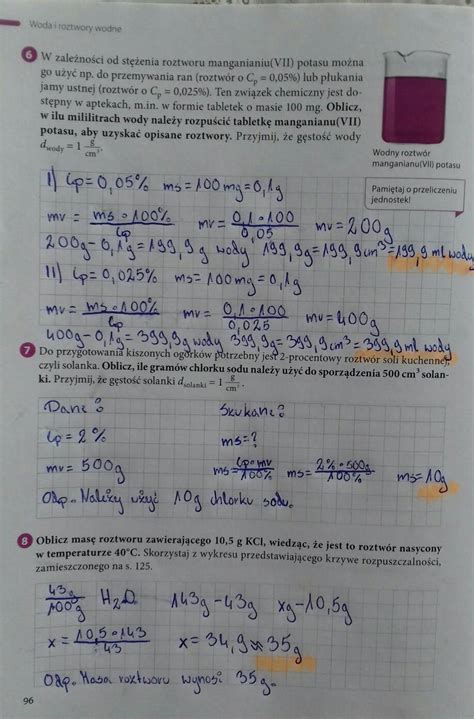 Woda i roztwory wodne
6 W zależności od stężenia roztworu manganianu(VII) potasu można
go użyć np. do przemywania ran (roztwór o Cp = 0,05%) lub płukania
jamy ustnej (roztwór o Cp = 0,025%). Ten związek chemiczny jest do-
stępny w aptekach, m.in. w formie tabletek o masie 100 mg. Oblicz,
w ilu mililitrach wody należy rozpuścić tabletkę manganianu(VII)
potasu, aby uzyskać opisane roztwory. Przyjmij, że gęstość wody
d wody = 1 g/cm³.
Wodny roztwór
manganianu(VII) potasu
Pamiętaj o przeliczeniu
jednostek!
I) Cp = 0,05% ms = 100mg = 0,1g
mr = ms · 100% / Cp mr = 0,1 · 100 / 0,05 mr = 200g
200g - 0,1g = 199,9g wody 199,9g = 199,9cm³ = 199,9 ml wody
II) Cp = 0,025% ms = 100mg = 0,1g
mr = ms · 100% / Cp mr = 0,1 · 100 / 0,025 mr = 400g
400g - 0,1g = 399,9g wody 399,9g = 399,9cm³ = 399,9 ml wody
7 Do przygotowania kiszonych ogórków potrzebny jest 2-procentowy roztwór soli kuchennej,
czyli solanka. Oblicz, ile gramów chlorku sodu należy użyć do sporządzenia 500 cm³ solan-
ki. Przyjmij, że gęstość solanki d solanki = 1 g/cm³.
Dane: Szukane:
Cp = 2% ms = ?
mr = 500g ms = Cp · mr / 100% ms = 2% · 500g / 100% ms = 10g
Odp. Należy użyć 10g chlorku sodu.
8 Oblicz masę roztworu zawierającego 10,5 g KCl, wiedząc, że jest to roztwór nasycony
w temperaturze 40°C. Skorzystaj z wykresu przedstawiającego krzywe rozpuszczalności,
zamieszczonego na s. 125.
43g / 100g H2O 143g - 43g xg - 10,5g
x = 10,5 · 143 / 43 x = 34,9 ≈ 35g
Odp. Masa roztworu wynosi 35g.
96